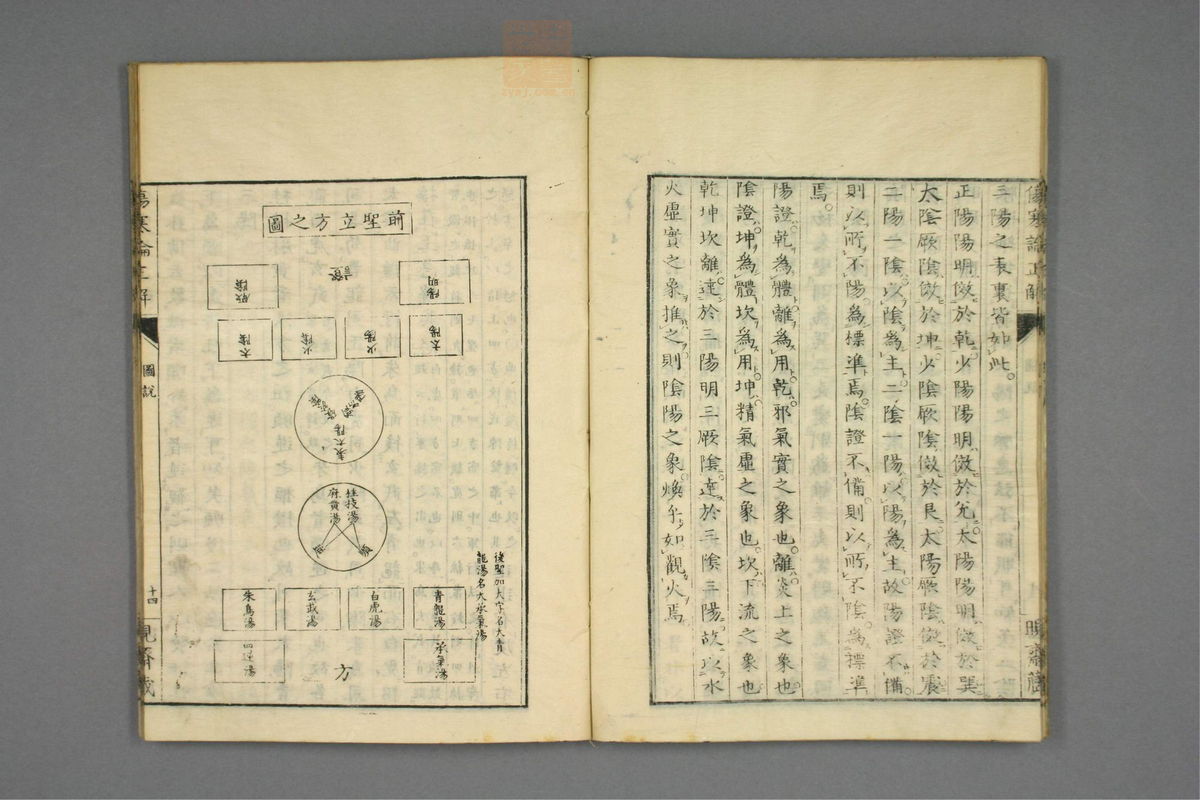 三陽之表裏皆如此。
正陽陽明倣於乾少陽陽明倣於兌太陽陽明倣於巽
太陰厥陰倣於坤少陰厥陰倣於艮太陽厥陰倣於震
二陽一陰以陰為主二陰一陽以陽為主故陽證不備
則以所不陽為標準焉陰證不備則以所不陰為標準
焉。
陽證乾為體離為用乾邪氣實之象也離炎上之象也
陰證坤為體坎為用坤精氣虛之象也坎下流之象也
乾坤坎離達於三陽明三厥陰達於三陰三陽故以水
火虛實之象推之則陰陽之象煥乎如觀火焉
傷寒論正解
前聖立方之圖
陽明
厥陰
太陽
少陽
少陰
太陰
表太陽
桂枝湯
麻黃湯
後聖加大字名大青
龍湯名大承氣湯
青龍湯
白虎湯
玄武湯
朱鳥湯
承氣湯
方
四逆湯
傷寒論正解
圖說
十四